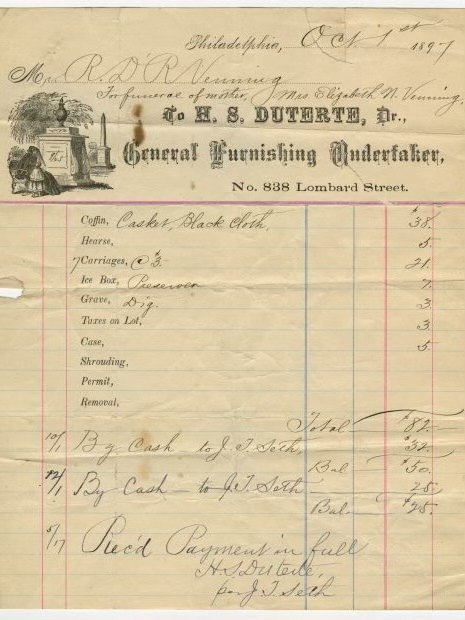 Philadelphia, Oct 1st 1897
Mr. R. D R Venning
For funeral of mother, Mrs. Elizabeth N. Venning,
To H. S. DUTERTE, Dr.,
General Furnishing Undertaker,
No. 838 Lombard Street.
Coffin, Casket, Black Cloth, $38.
Hearse, 5.
7 Carriages, @ $3. 21.
Ice Box, Preserver 7.
Grave, Dig. 3.
Taxes on Lot, 3.
Case, 5.
Shrouding,
Permit,
Removal,
Total $82.
10/1 By Cash - to J. T. Seth, $32.
Bal $50.
12/1 By Cash - to J. T. Seth 25.
Bal. $25.
5/17 Rec'd Payment in full
H. S. Duterte,
per J. T. Seth